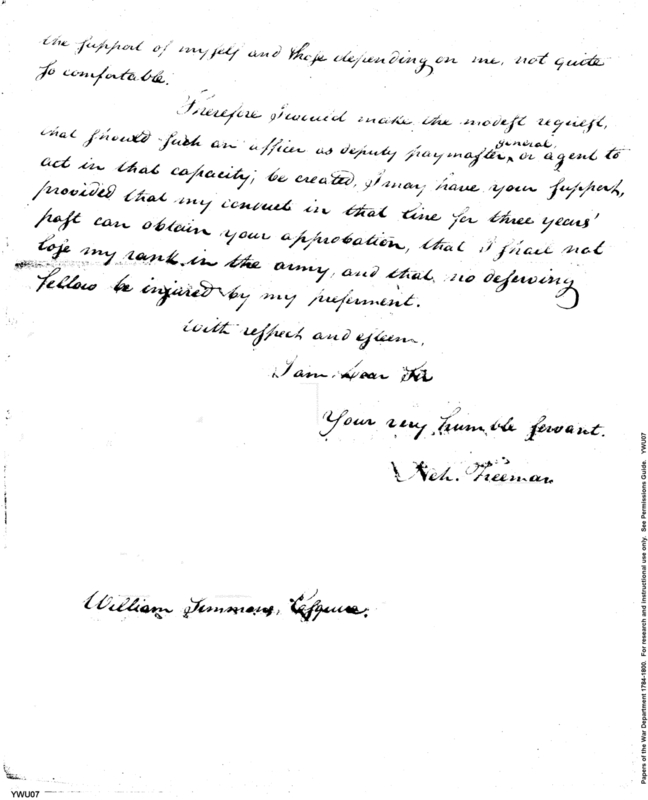 the support of myself and those depending on me, not quite
so comfortable.
Therefore I would make the modest request,
that should such an officer as deputy paymaster general, or agent to
act in that capacity, be created, I may have your support,
provided that my conduct in that line for three years'
past can obtain your approbation, that I shall not
lose my rank in the army, and that no deserving
fellow be injured by my preferment.
With respect and esteem,
I am Dear Sir
Your very humble servant.
Neh. Freeman
William Simmons, Esquire.
YWU07
Papers of the War Department 1784-1800. For research and instructional use only. See Permissions Guide. YWU07